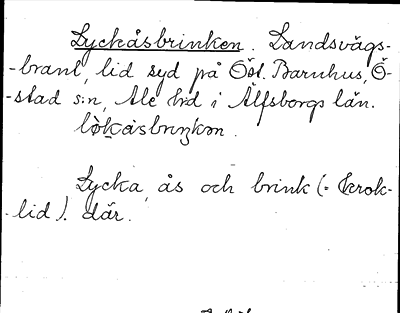 Lyckåsbrinken. Landsvägs-
-brant, lid syd på Öst. Barnhus, Ö-
-stad s:n, Ale hd i Älfsborgs län.
Lycka, ås och brink (= krok-
-lid). där.